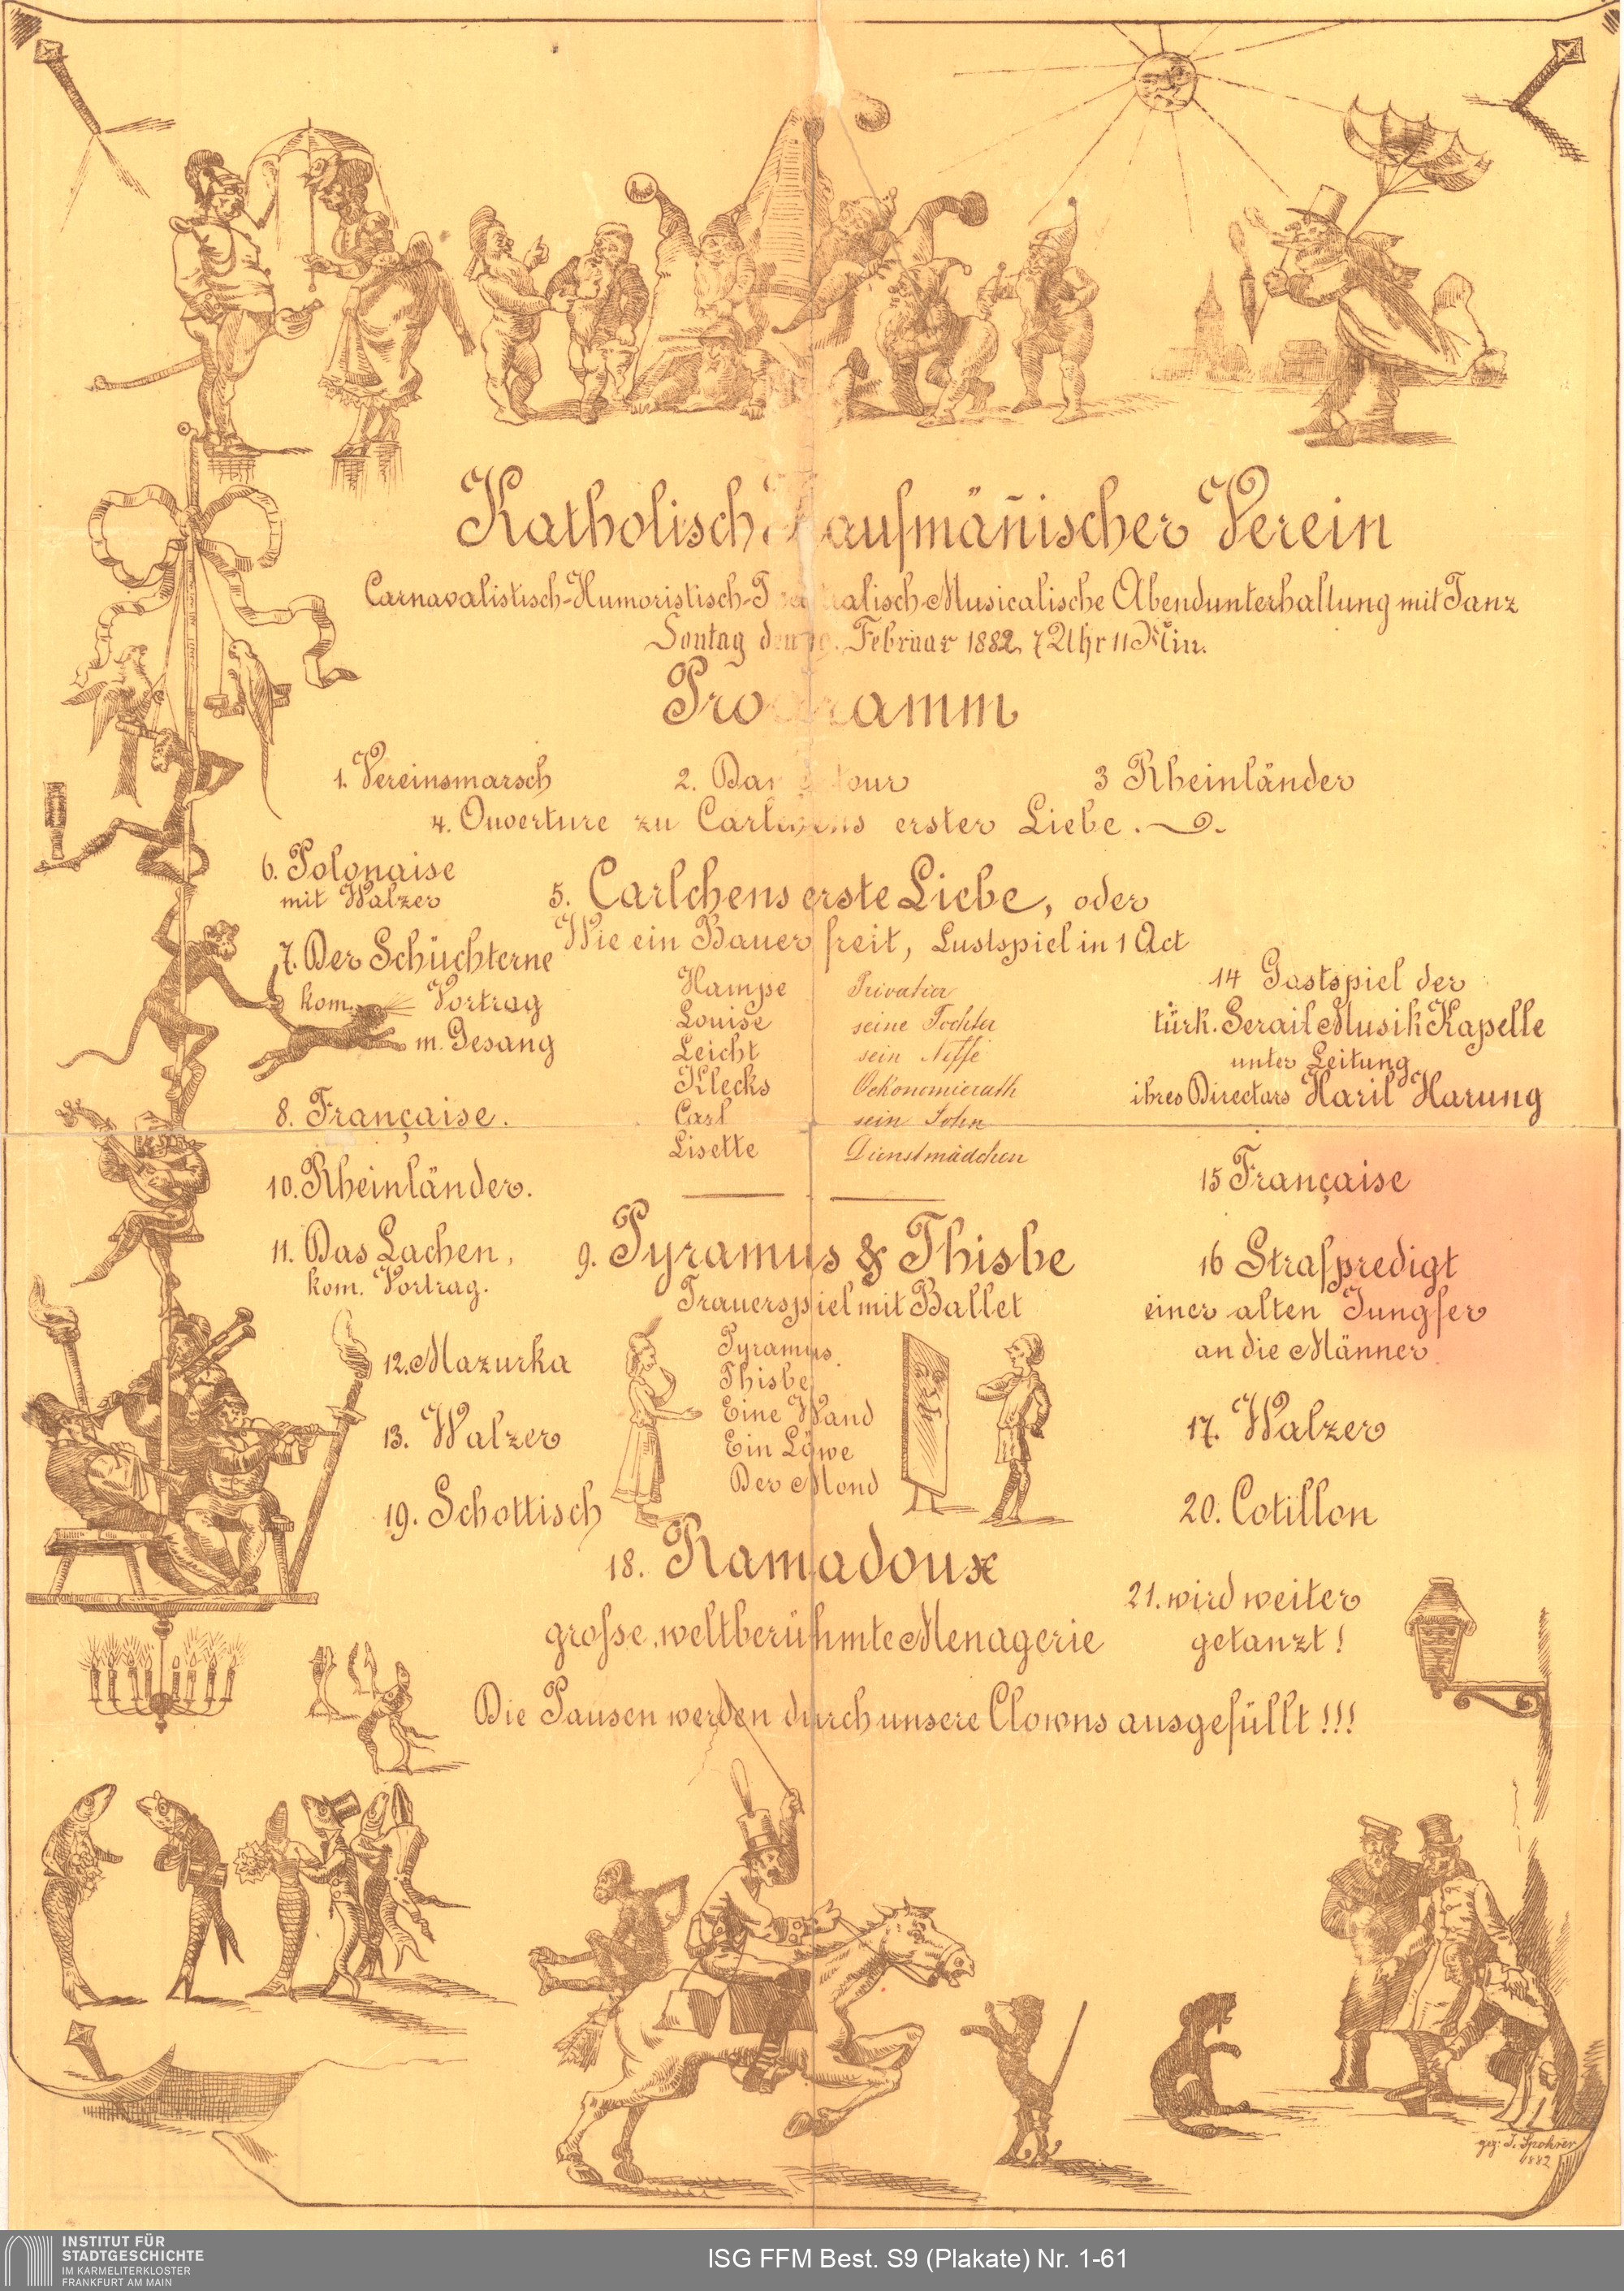 Katholisch Kaufmäñischer Verein
Carnavalistisch-Humoristisch-Theatralisch-Musicalische Abendunterhaltung mit Tanz
Sontag den 19. Februar 1882, 7 Uhr 11 Min.
Programm
1. Vereinsmarsch
2. Damentour
3 Rheinländer
4. Ouverture zu Carlchens erster Liebe.
5. Carlchens erste Liebe, oder
Wie ein Bauer freit, Lustspiel in 1 Act
Hampe Privatier
Louise seine Tochter
Leicht sein Neffe
Klecks Oekonomierath
Carl sein Sohn
Lisette Dienstmädchen
6. Polonaise
mit Walzer
7. Der Schüchterne
kom. Vortrag
m. Gesang
8. Française.
9. Pyramus & Thisbe
Trauerspiel mit Ballet
Pyramus
Thisbe
Eine Wand
Ein Löwe
Der Mond
10. Rheinländer.
11. Das Lachen,
kom. Vortrag.
12. Mazurka
13. Walzer
14 Gastspiel der
türk. Serail Musik Kapelle
unter Leitung
ihres Directors Haril Harung
15 Française
16 Strafpredigt
einer alten Jungfer
an die Männer
17. Walzer
18. Ramadoux
grosse, weltberühmte Menagerie
19. Schottisch
20. Cotillon
21. wird weiter
getanzt!
Die Pausen werden durch unsere Clowns ausgefüllt!!!
gez: J. Spohrer
1882
INSTITUT FÜR
STADTGESCHICHTE
IM KARMELITERKLOSTER
FRANKFURT AM MAIN
ISG FFM Best. S9 (Plakate) Nr. 1-61